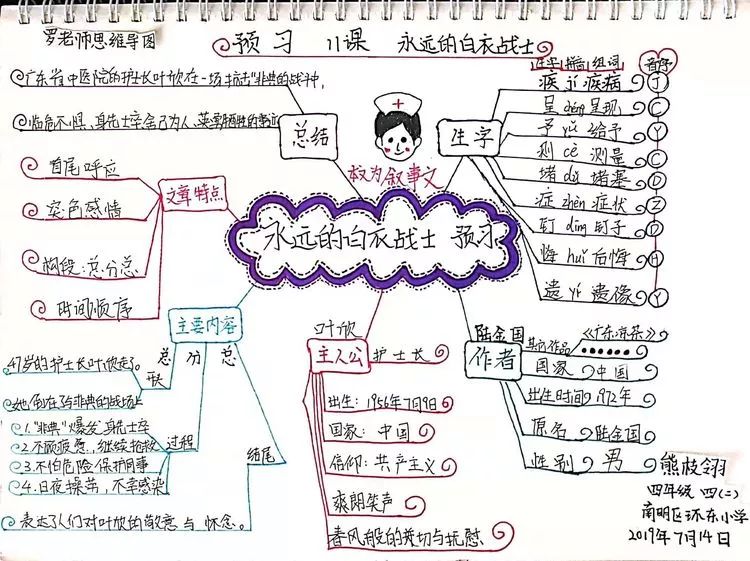 罗老师思维导图
预习 11课 永远的白衣战士
广东省中医院的护士长叶欣在一场抗击"非典的战斗中,
临危不惧、身先士卒舍己为人、英勇牺牲的事迹
总结
权为叙事文
生字
生字 拼音 组词 音序
疾 jí 疾病 J
呈 chéng 呈现 C
予 yǔ 给予 Y
测 cè 测量 C
堵 dǔ 堵塞 D
症 zhèn 症状 Z
钉 dīng 钉子 D
悔 huǐ 后悔 H
遗 yí 遗像 Y
文章特点
首尾呼应
突色感情
构段:总分总
时间顺序
永远的白衣战士 预习
主要内容
总 分 总
47岁的护士长叶欣走了。
开头
她倒在了与非典的战场上
1."非典"爆发 身先士卒
2.不顾疲惫,继续抢救
3.不怕危险 保护同事
4.日夜操劳,不幸感染
过程
结尾
表达了人们对叶欣的敬意与怀念。
叶欣
主人公 护士长
出生:1956年7月9日
国家:中国
信仰:共产主义
爽朗笑声
春风般的関切与抚慰
作者
陆金国
其它作品 《广东凉茶》
••••••
国家 中国
出生时间 1972年
原名 陆金国
性别 男
熊枝翎
四年级 四(二)
南明区环东小学
2019年7月14日